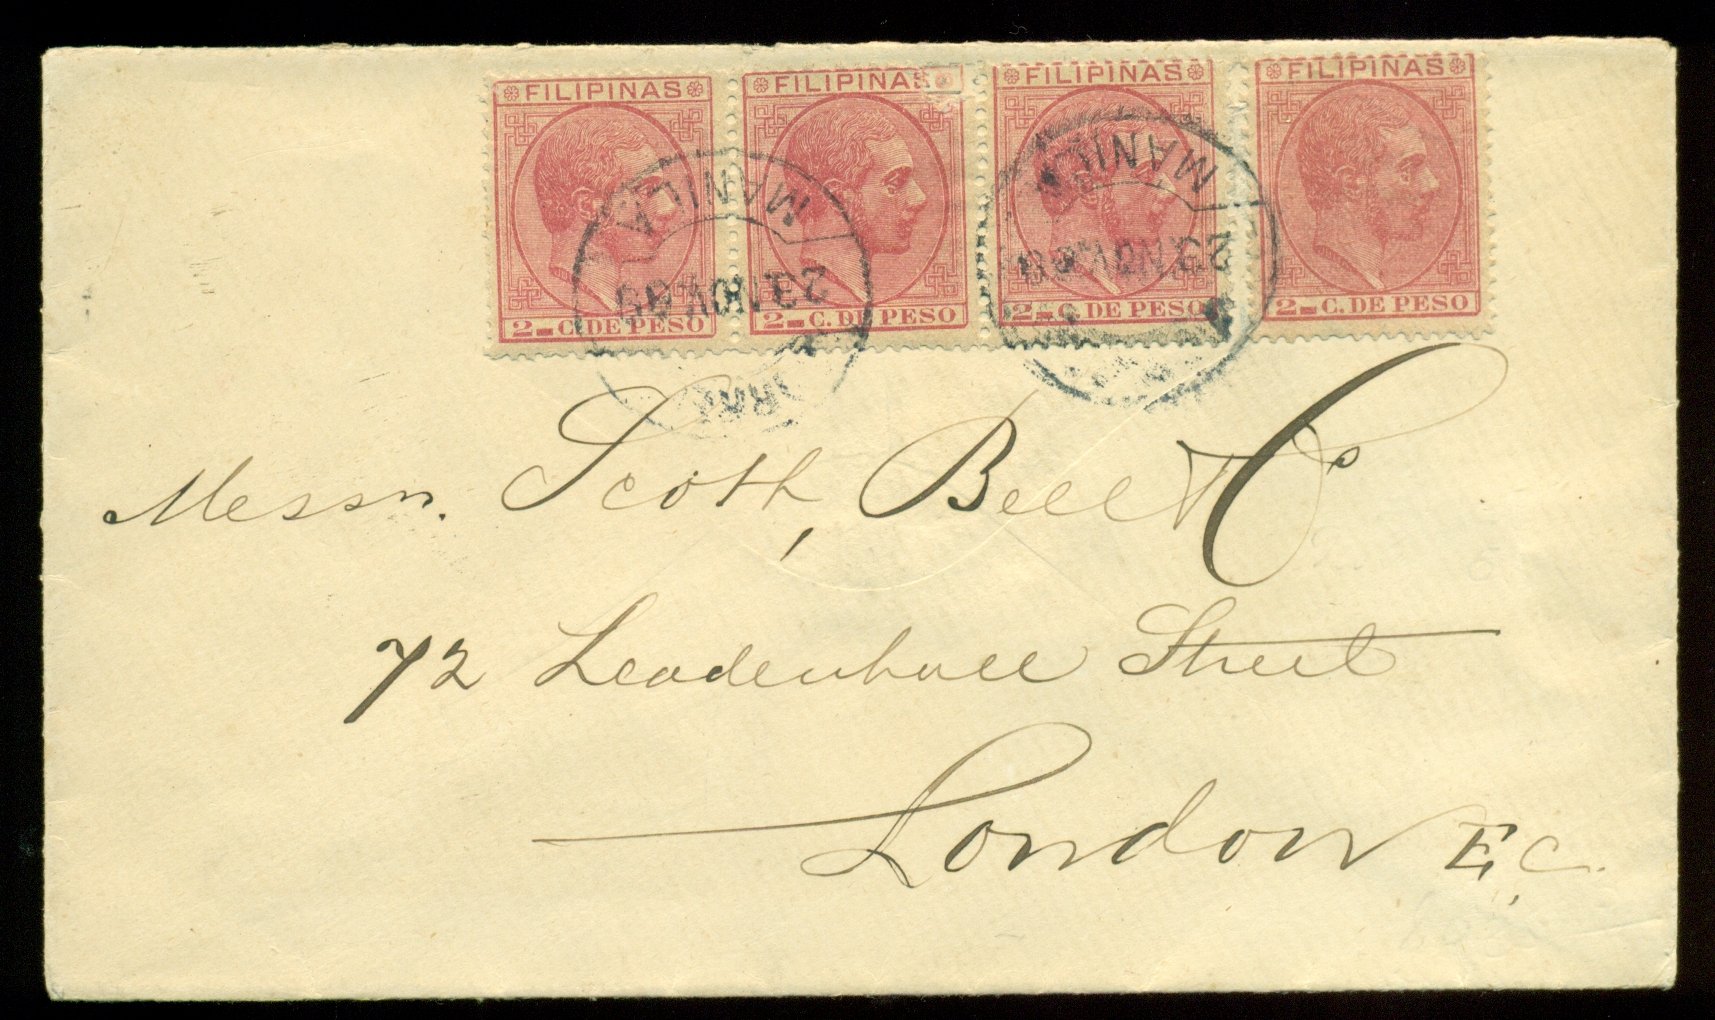 FILIPINAS FILIPINAS FILIPINAS FILIPINAS
MANILA MANILA
23.NOV. 23.NOV.
2 C. DE PESO 2 C. DE PESO 2 C. DE PESO 2 C. DE PESO
Messrs. Scott, Bell & Co
72 Leadenhall Street
London E.C.